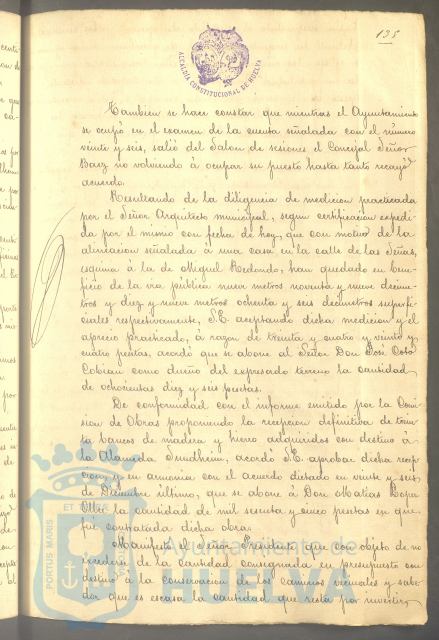 135
ALCALDÍA CONSTITUCIONAL DE HUELVA
Tambien se hace constar que mientras el Ayuntamiento
se ocupó en el examen de la cuenta señalada con el número
veinte y seis, salió del Salon de sesiones el Concejal Señor
no volviendo á ocupar su puesto hasta tanto recayó
acuerdo.
Resultando de la diligencia de medicion practicada
por el Señor Arquitecto municipal, segun certificacion expedi-
da por el mismo con fecha de hoy, que con motivo de la
alineacion señalada á una casa en la calle de las Señas,
esquina á la de Miguel Redondo, han quedado en bene-
ficio de la via pública nueve metros noventa y nueve decime-
tros y diez y nueve metros ochenta y seis decimetros superfi-
ciales respectivamente, S.E. aceptando dicha medicion y el
aprecio practicado, á razon de treinta y cuatro y veinte y
cuatro pesetas, acordó que se abone al Señor Don José Coto
Cobian como dueño del expresado terreno la cantidad
de ochocientas diez y seis pesetas.
De conformidad con el informe emitido por la Comi-
sion de Obras proponiendo la recepcion definitiva de trein-
ta bancos de madera y hierro adquiridos con destino á
la Alameda Sundheim, acordó S.E. aprobar dicha recep-
cion y en armonia con el acuerdo dictado en veinte y seis
de Diciembre último, que se abone á Don Matías
la cantidad de mil sesenta y cinco pesetas en que
fué contratada dicha obra.
Manifestó el Señor Presidente que con objeto de no
excederse de la cantidad consignada en presupuesto con
destino á la conservacion de los caminos vecinales y sabe-
dor que es escasa la cantidad que resta por invertir,
PORTUS MARIS
ET
Ayuntamiento de
HUELVA